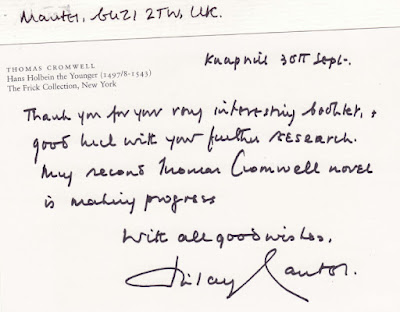 Mantel, GU21 2TW, UK.
THOMAS CROMWELL
Hans Holbein the Younger (1497/8-1543)
The Frick Collection, New York
Knaphill 30th Sept.
Thank you for your very interesting booklet, &
good luck with your further research.
My second Thomas Cromwell novel
is making progress
With all good wishes,
Hilary Mantel.